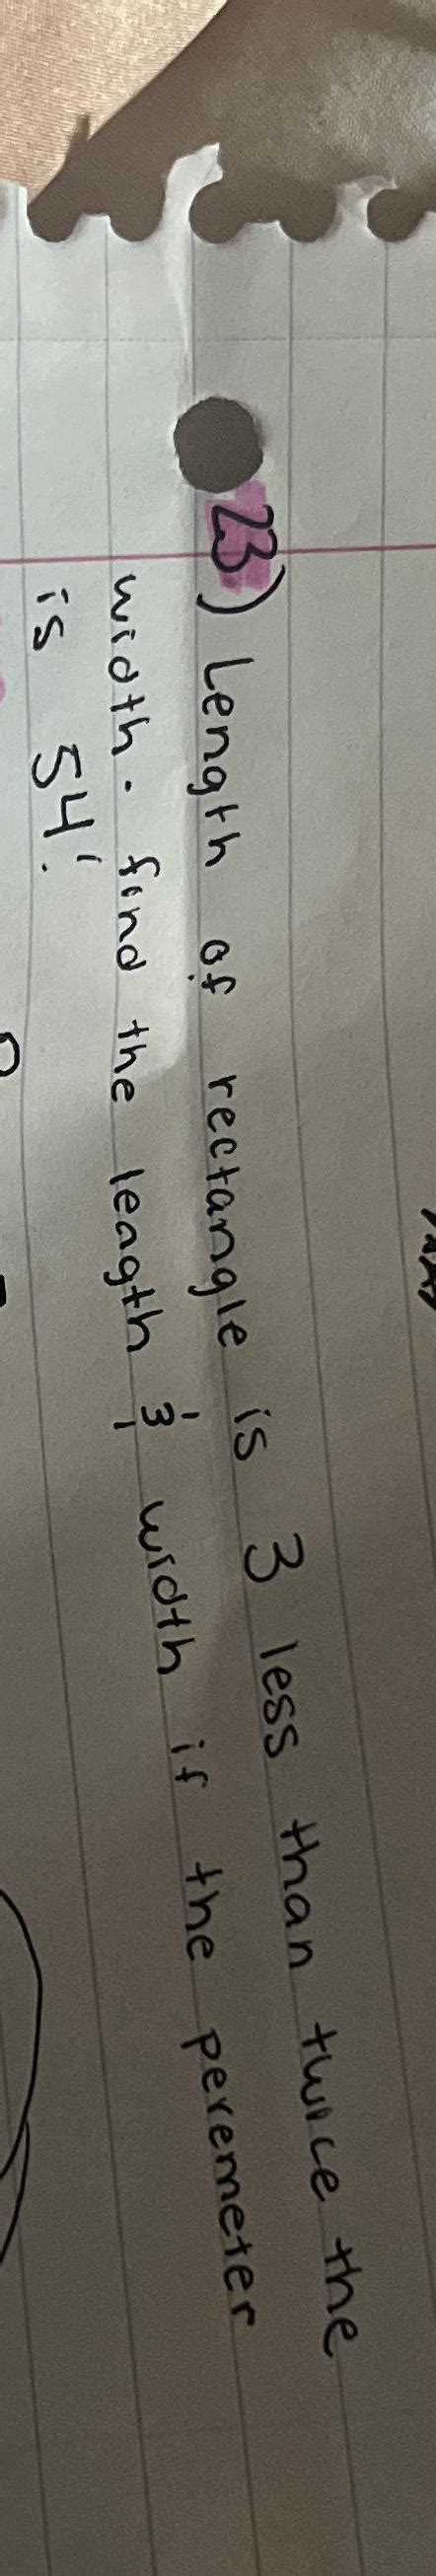 23) Length of rectangle is 3 less than twice the
width. find the length & width if the peremeter
is 54'.